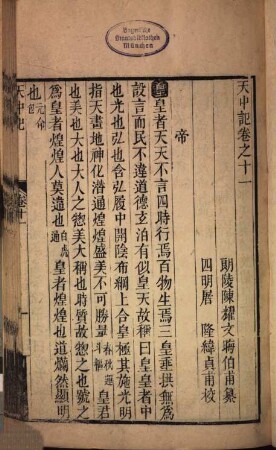 Bayerische
Staatsbibliothek
München
天中記卷之十一
朗陵陳耀文晦伯甫纂
四明屠　隆緯眞甫校
帝
皇皇者天天不言四時行焉百物生焉三皇垂拱無爲
設言而民不違道德玄泊有似皇天故稱曰皇皇者中
也光也弘也含弘履中開陰布綱上合皇極其施光明
指天畫地神化潛通煌煌盛美不可勝量春秋運斗樞皇君
也美也大也大人之揔美大稱也時質故揔之也號之
爲皇者煌煌人莫違也白虎通皇者煌煌也道爛然顯明
也元命苞
天中記
卷十一